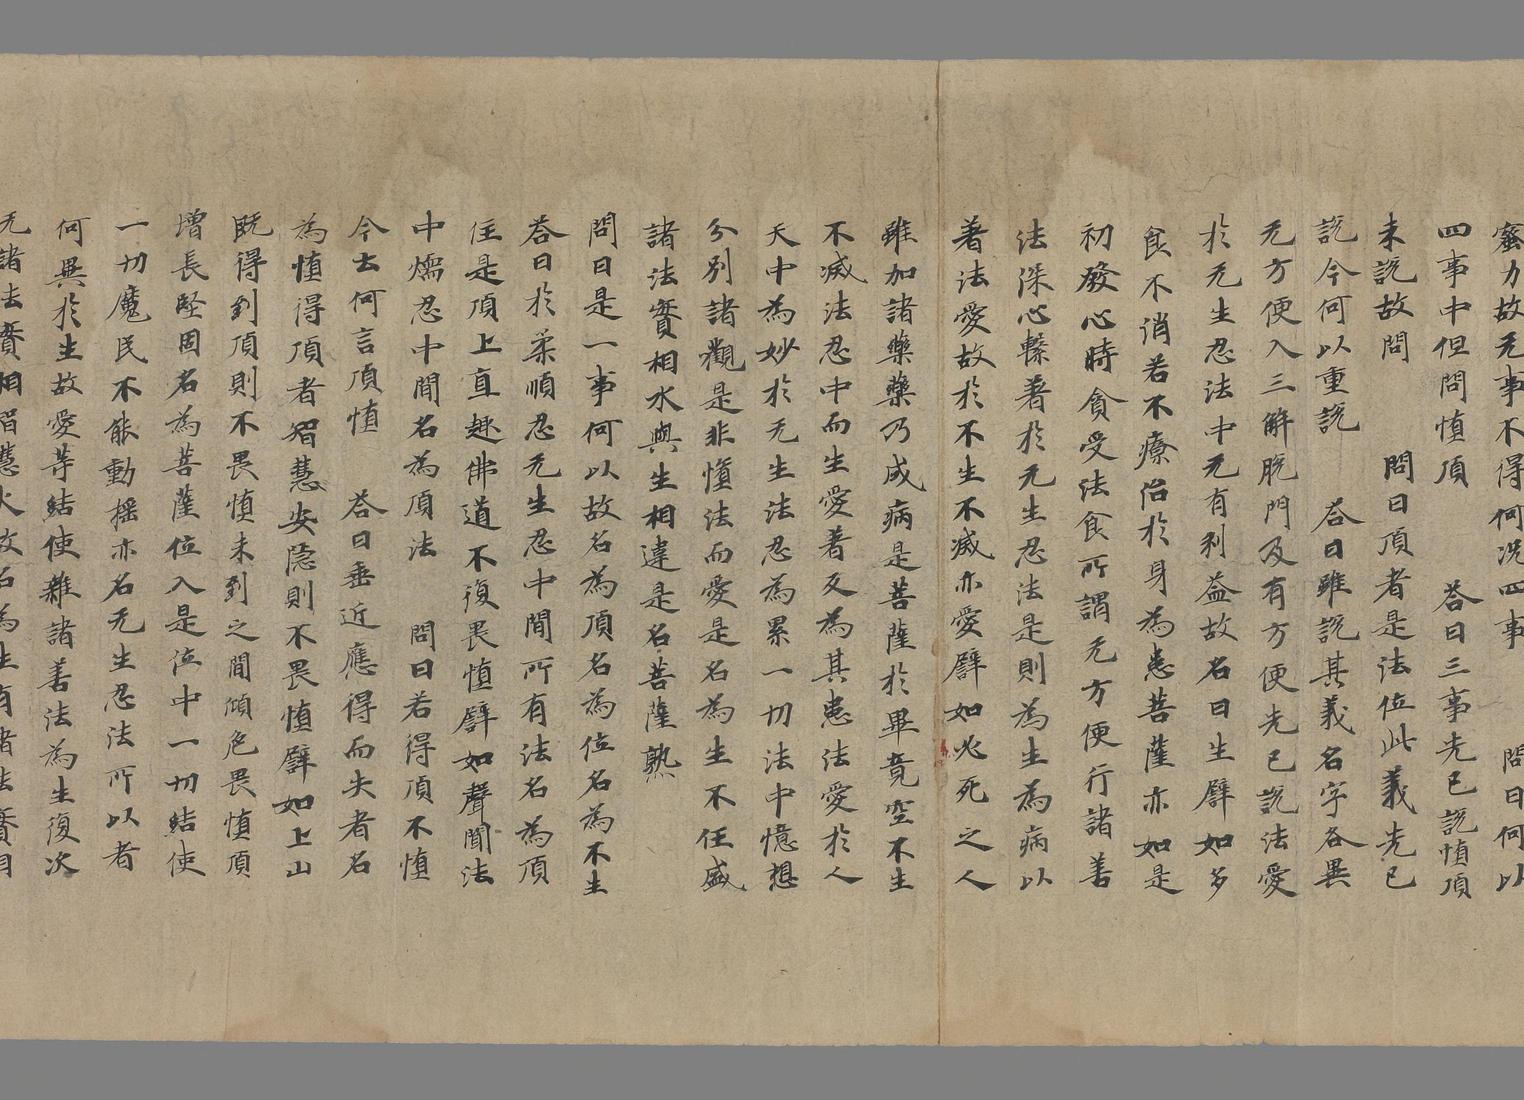 蜜力故无事不得何况四事　問曰何以
四事中但問慎頂　荅曰三事先已説慎頂
未説故問　問曰頂者是法位此義先已
説今何以重説　荅曰雖説其義名字各異
无方便入三解脱門及有方便先已説法愛
於无生忍法中无有利益故名曰生譬如多
食不消若不療治於身為患菩薩亦如是
初發心時貪受法食所謂无方便行諸善
法深心繫著於无生忍法是則為生為病以
著法愛故於不生不滅亦愛譬如必死之人
雖加諸藥藥乃成病是菩薩於畢竟空不生
不滅法忍中而生愛著反為其患法愛於人
天中為妙於无生法忍為累一切法中憶想
分別諸觀是非愼法而愛是名為生不任盛
諸法實相水與生相違是名菩薩熟
問曰是一事何以故名為頂名為位名為不生
荅曰於柔順忍无生忍中間所有法名為頂
住是頂上直趣佛道不復畏慎譬如聲聞法
中燸忍中間名為頂法　問曰若得頂不慎
今云何言頂慎　荅曰垂近應得而失者名
為慎得頂者智慧安隱則不畏慎譬如上山
既得到頂則不畏慎未到之間傾危畏慎頂
增長堅固名為菩薩位入是位中一切結使
一切魔民不能動摇亦名无生忍法所以者
何異於生故愛等結使雜諸善法為生復次
无諸法實相智慧火故名為生有諸法實相